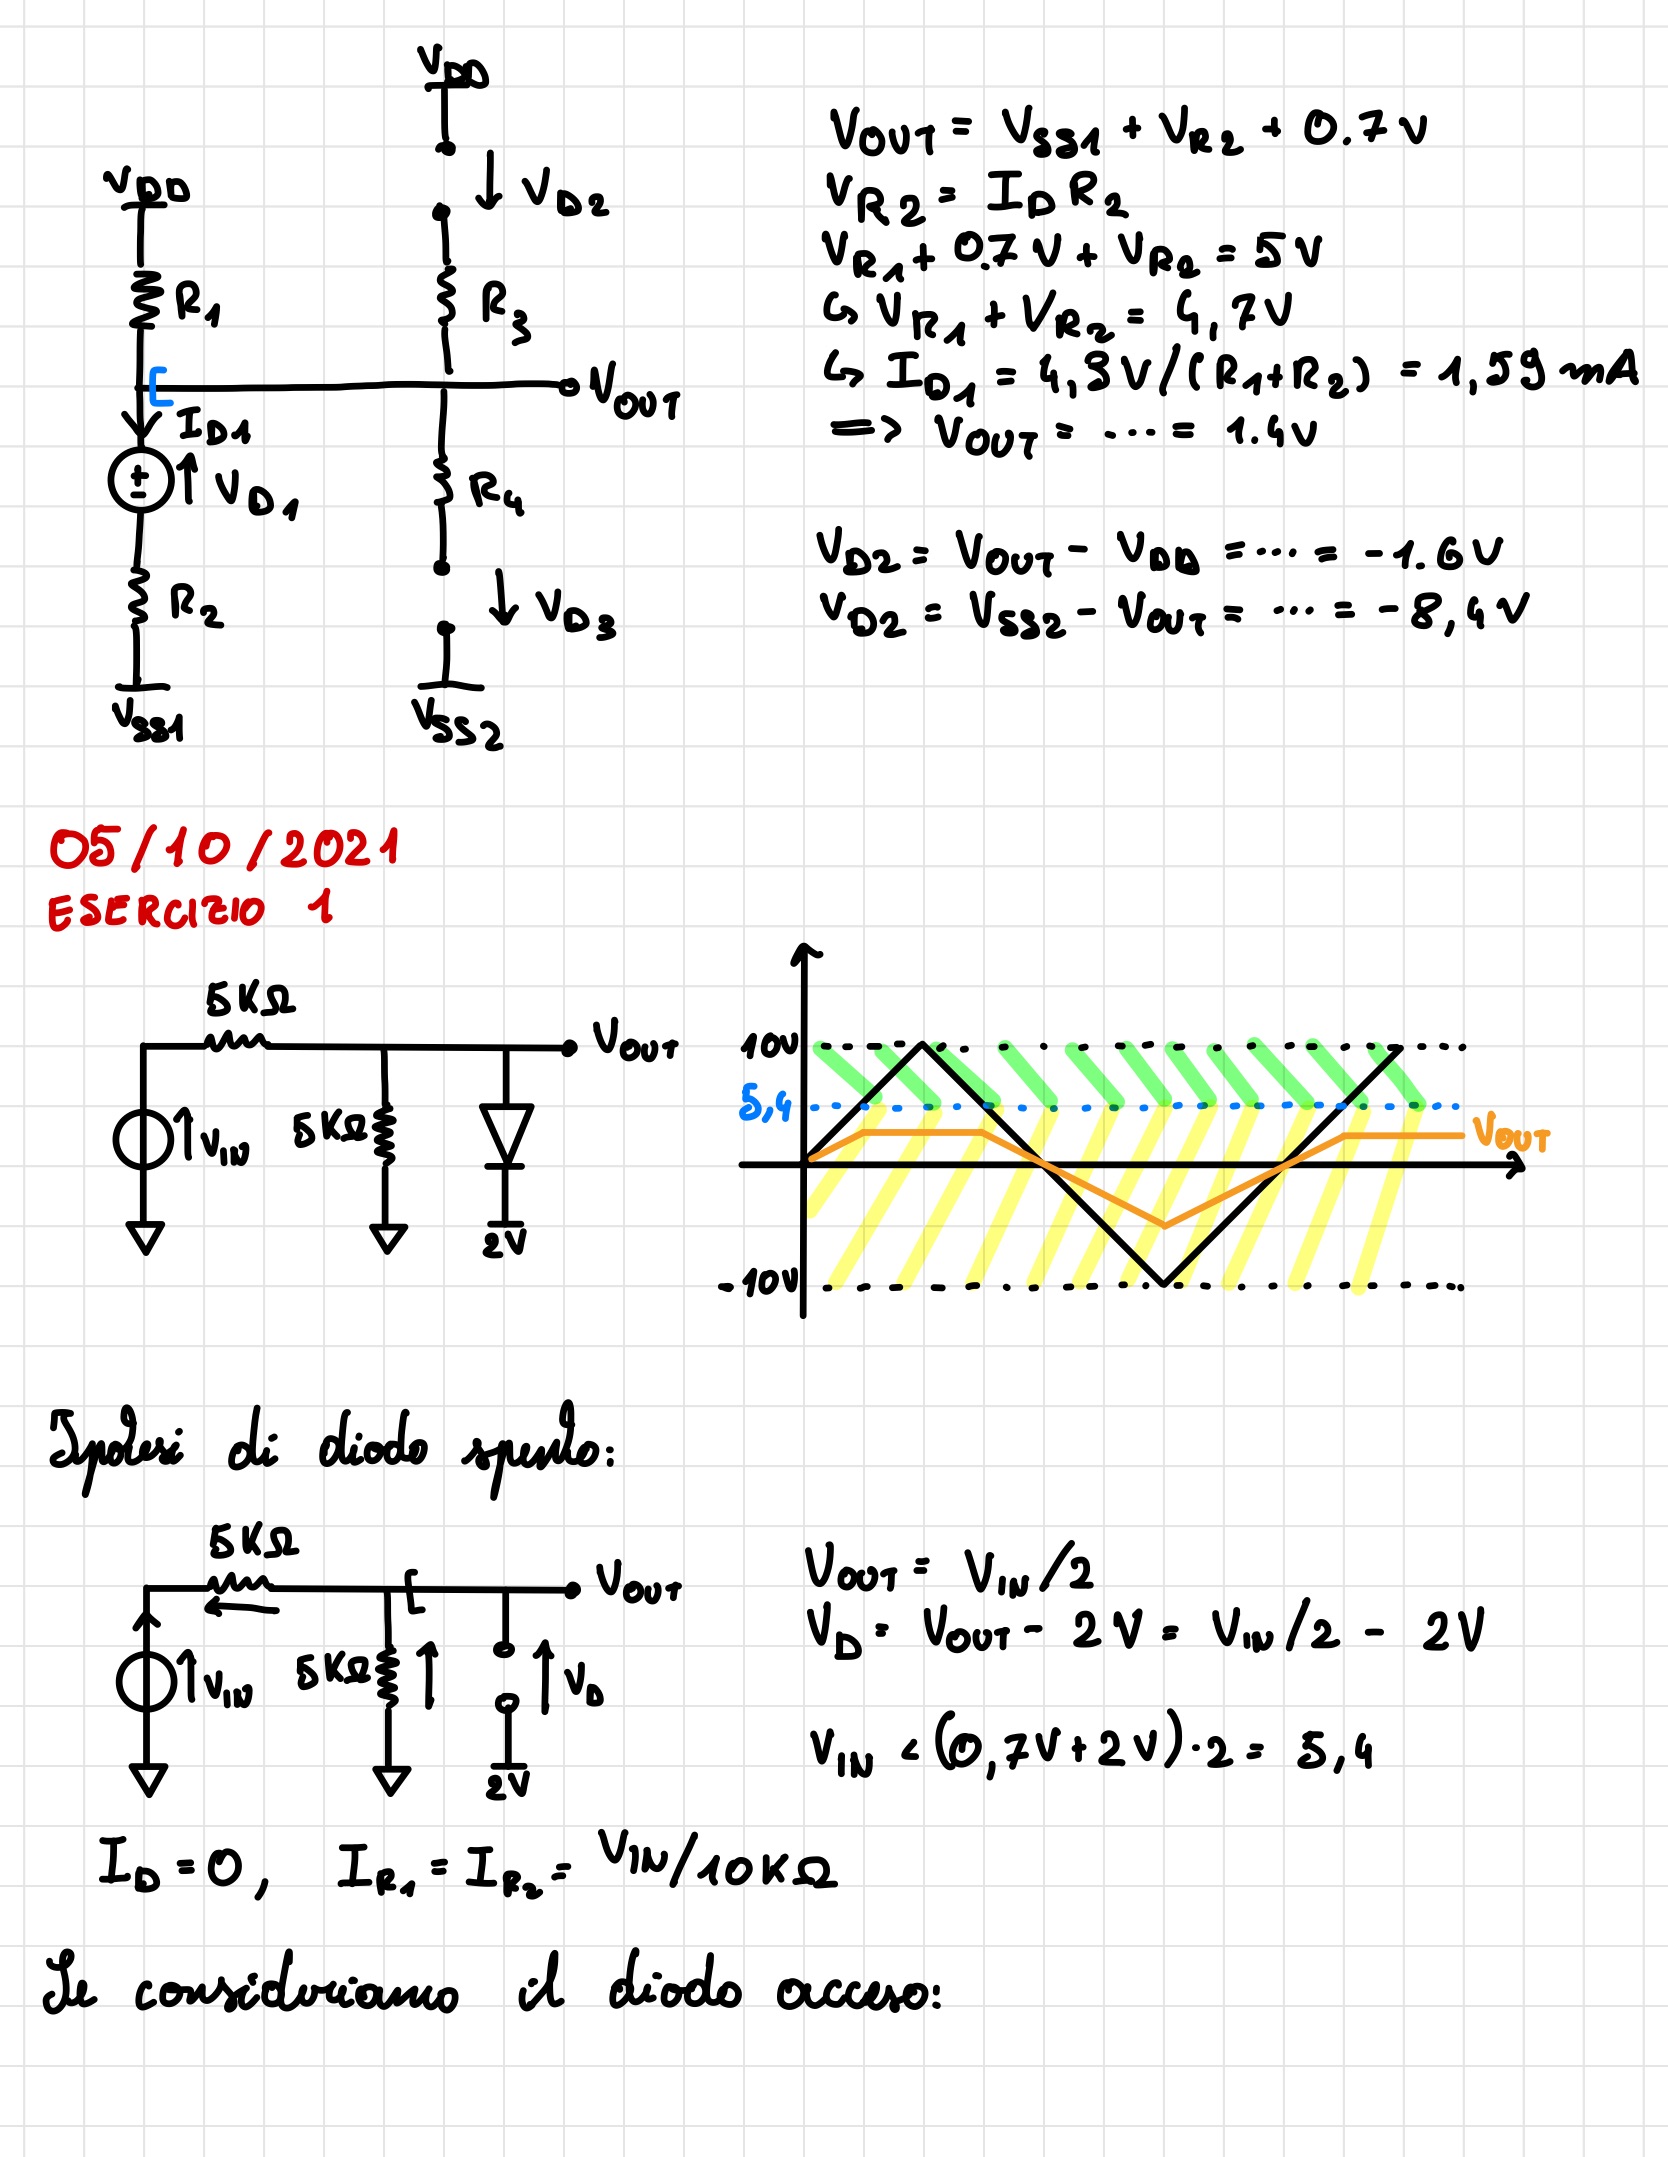 V_DD
V_DD
V_D2
R_1
R_3
V_OUT
I_D1
V_D1
R_4
R_2
V_D3
V_SS1
V_SS2
V_OUT = V_SS1 + V_R2 + 0.7 V
V_R2 = I_D R_2
V_R1 + 0.7 V + V_R2 = 5 V
↳ V_R1 + V_R2 = 4,7V
↳ I_D1 = 4,3 V/(R_1+R_2) = 1,59 mA
=> V_OUT = ... = 1.4 V
V_D2 = V_OUT - V_DD = ... = -1.6 V
V_D2 = V_SS2 - V_OUT = ... = -8,4 V
05/10/2021
ESERCIZIO 1
5KΩ
V_OUT
V_IN
5KΩ
2V
10V
5,4
V_OUT
-10V
Ipotesi di diodo spento:
5KΩ
V_OUT
V_IN
5KΩ
V_D
2V
V_OUT = V_IN/2
V_D = V_OUT - 2V = V_IN/2 - 2V
V_IN < (0,7V+2V)·2 = 5,4
I_D = 0, I_R1 = I_R2 = V_IN/10KΩ
Se consideriamo il diodo acceso: